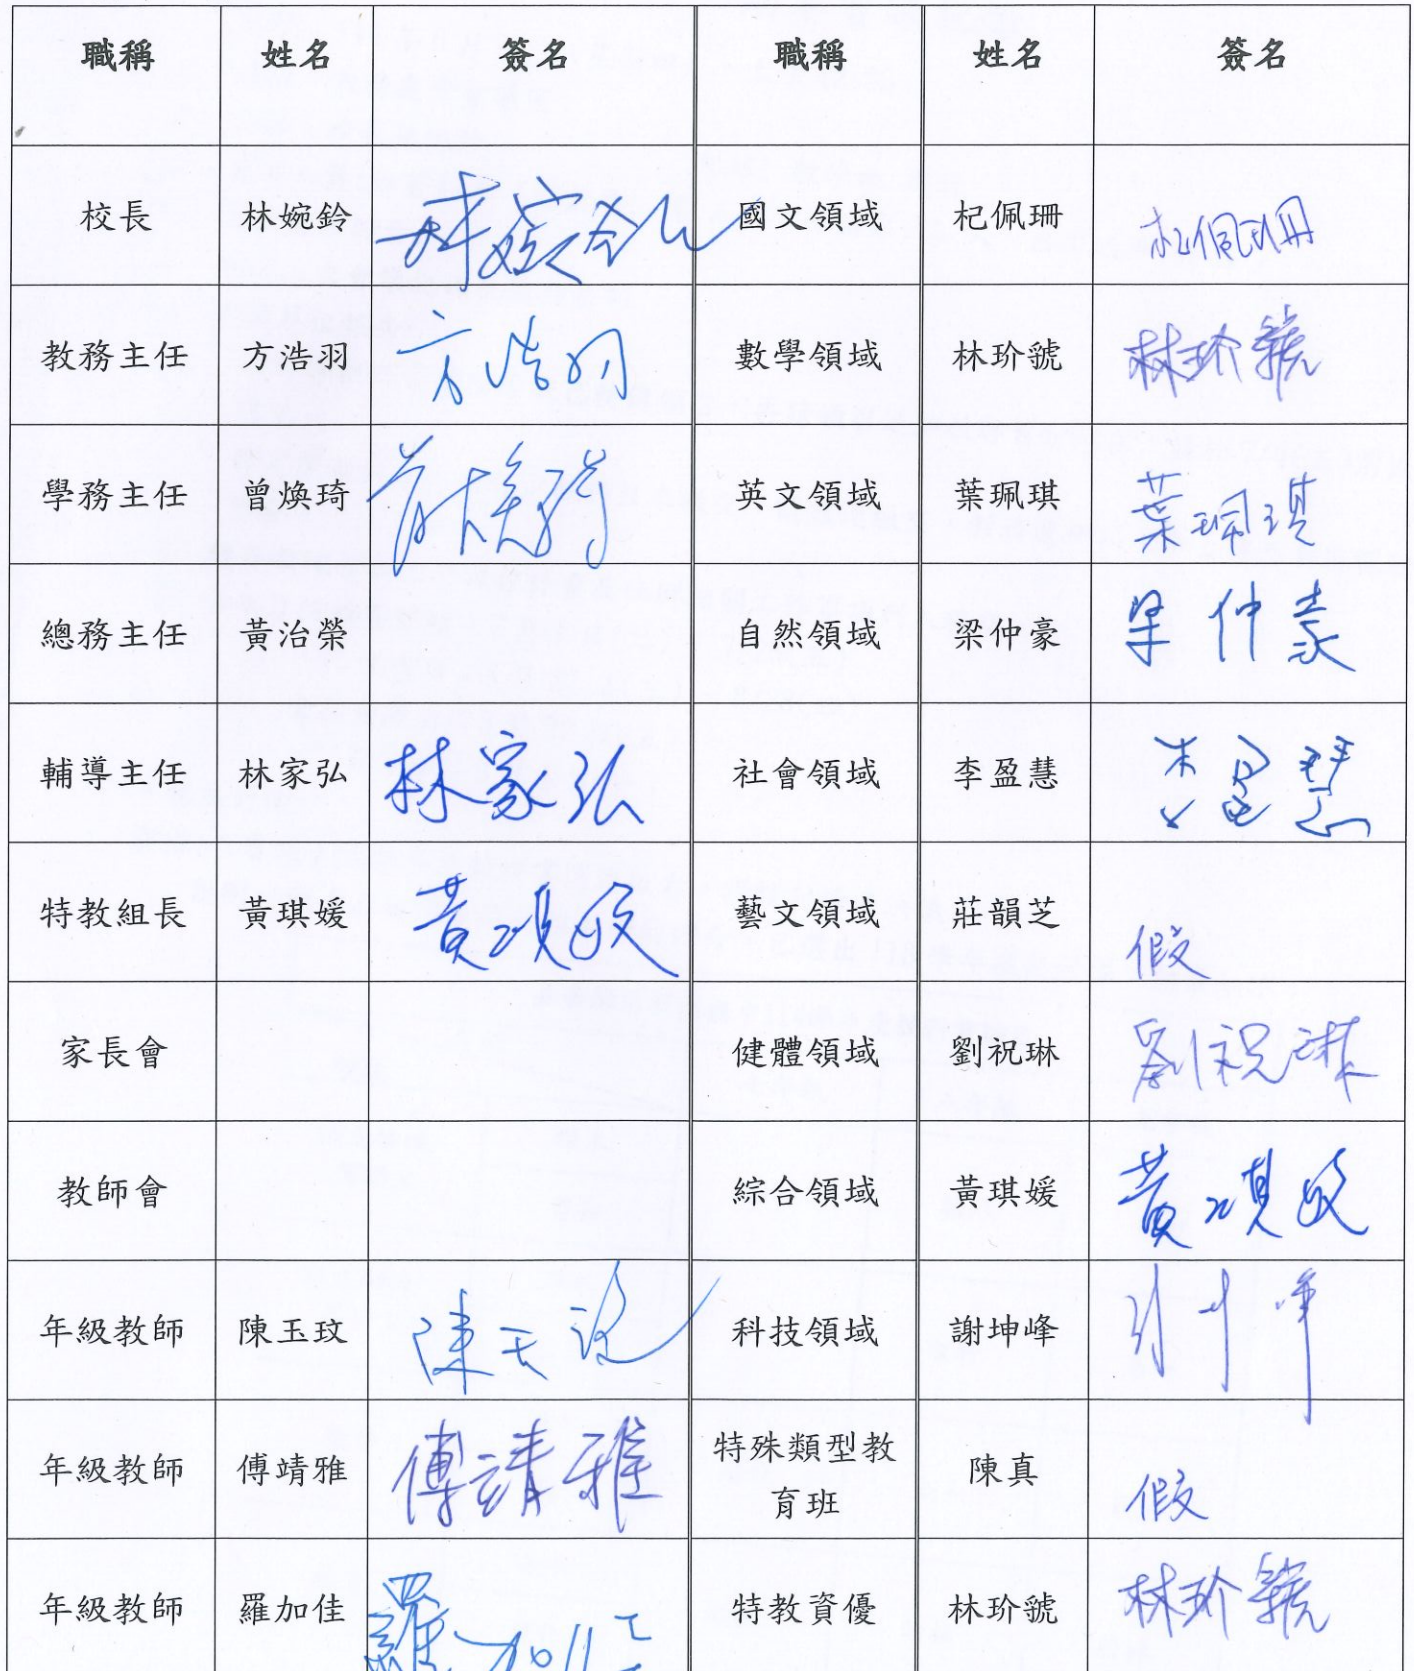 職稱 姓名 簽名 職稱 姓名 簽名
校長 林婉鈴 林婉鈴 國文領域 杞佩珊 杞佩珊
教務主任 方浩羽 方浩羽 數學領域 林玠號 林玠號
學務主任 曾煥琦 曾煥琦 英文領域 葉珮琪 葉珮琪
總務主任 黃治榮 自然領域 梁仲豪 梁仲豪
輔導主任 林家弘 林家弘 社會領域 李盈慧 李盈慧
特教組長 黃琪媛 黃琪媛 藝文領域 莊韻芝 假
家長會 健體領域 劉祝琳 劉祝琳
教師會 綜合領域 黃琪媛 黃琪媛
年級教師 陳玉玟 陳玉玟 科技領域 謝坤峰
年級教師 傅靖雅 傅靖雅 特殊類型教
育班 陳真 假
年級教師 羅加佳 羅加佳 特教資優 林玠號 林玠號